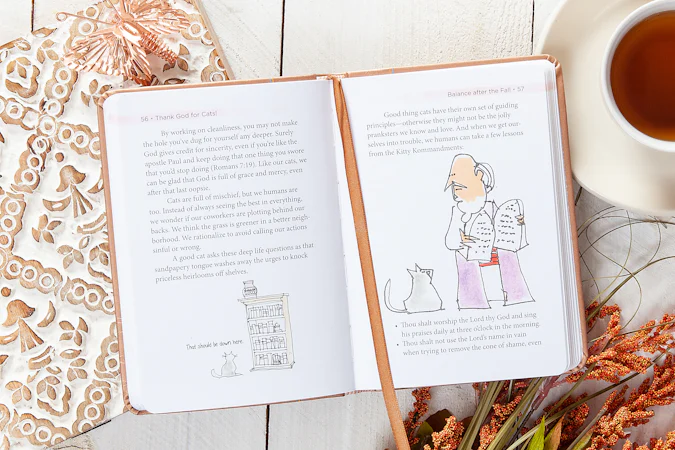 56 • Thank God for Cats!
By working on cleanliness, you may not make
the hole you've dug for yourself any deeper. Surely
God gives credit for sincerity, even if you're like the
apostle Paul and keep doing that one thing you swore
that you'd stop (Romans 7:19). Like our cats, we
can be glad that God is full of grace and mercy, even
after that last oopsie.
Cats are full of mischief, but we humans are
too. Instead of always seeing the best in everything,
we wonder if our coworkers are plotting behind our
backs. We think the grass is greener in a better neigh-
borhood. We rationalize to avoid calling our actions
sinful or wrong.
A good cat asks these deep life questions as that
sandpapery tongue washes away the urges to knock
priceless heirlooms off shelves.
That should be down here.
Balance after the Fall • 57
Good thing cats have their own set of guiding
principles—otherwise they might not be the jolly
pranksters we know and love. And when we get our-
selves into trouble, we humans can take a few lessons
from the Kitty Kommandments.
• Thou shalt worship the Lord thy God and sing
his praises daily at three o'clock in the morning.
• Thou shalt not use the Lord's name in vain
when trying to remove the cone of shame, even